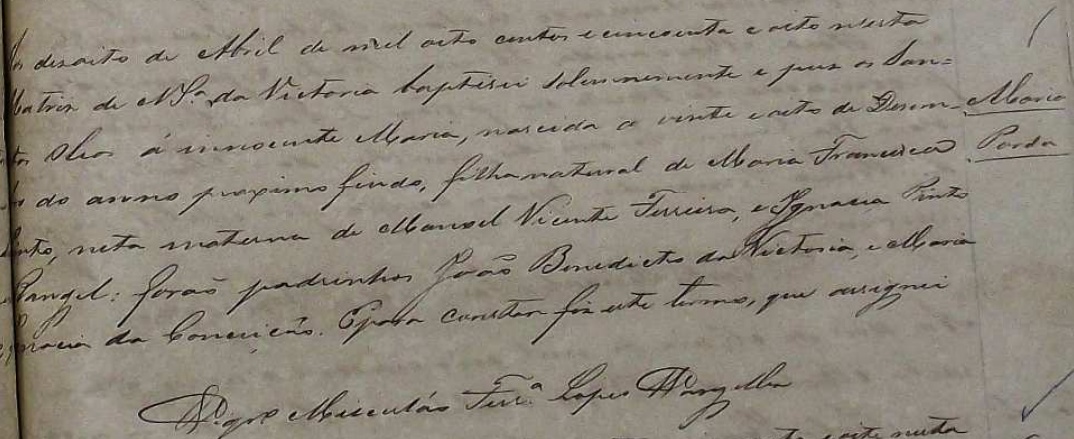 Aos desoito de Abril de mil oito centos e cincoenta e oito nesta
Matriz de N. Sª da Victoria baptisei solemnemente e puz os San=
tos Oleos á innocente Maria, nascida a vinte e oito de Desem-
bro do anno proximo findo, filha natural de Maria Francisca
Pinto, neta materna de Manoel Vicente Ferreira, e Ignacia Pinto
Rangel: forão padrinhos João Benedicto da Victoria, e Maria
Ignacia da Conceição. E para constar fiz este termo, que assignei
Maria
Parda
Vigrº Misceslão Ferrª Lopes
nesta